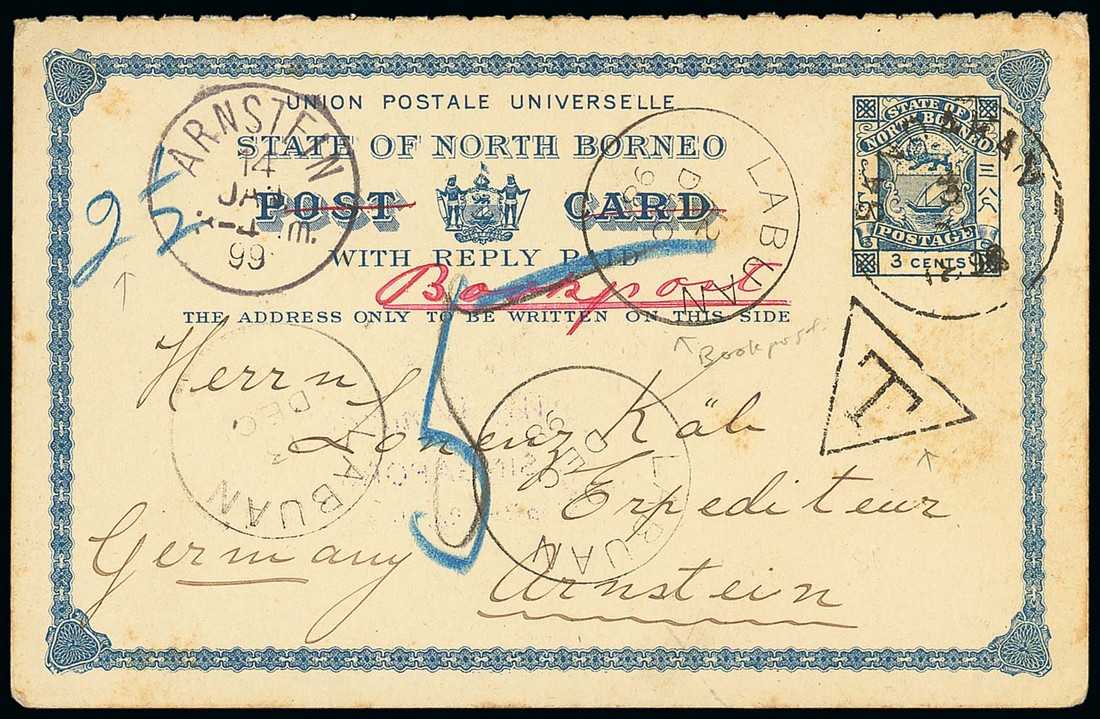 UNION POSTALE UNIVERSELLE
STATE OF NORTH BORNEO
POST CARD
WITH REPLY PAID
Bookpost
THE ADDRESS ONLY TO BE WRITTEN ON THIS SIDE
STATE OF
NORTH BORNEO
POSTAGE
3 CENTS
三八个
ARNSTEIN
14
JAN
99
25
LABUAN
DE
98
Bookpost
T
5
Herrn
Lorenz Käb
Expediteur
Germany Arnstein
LABUAN
DEC
LABUAN
DEC
98